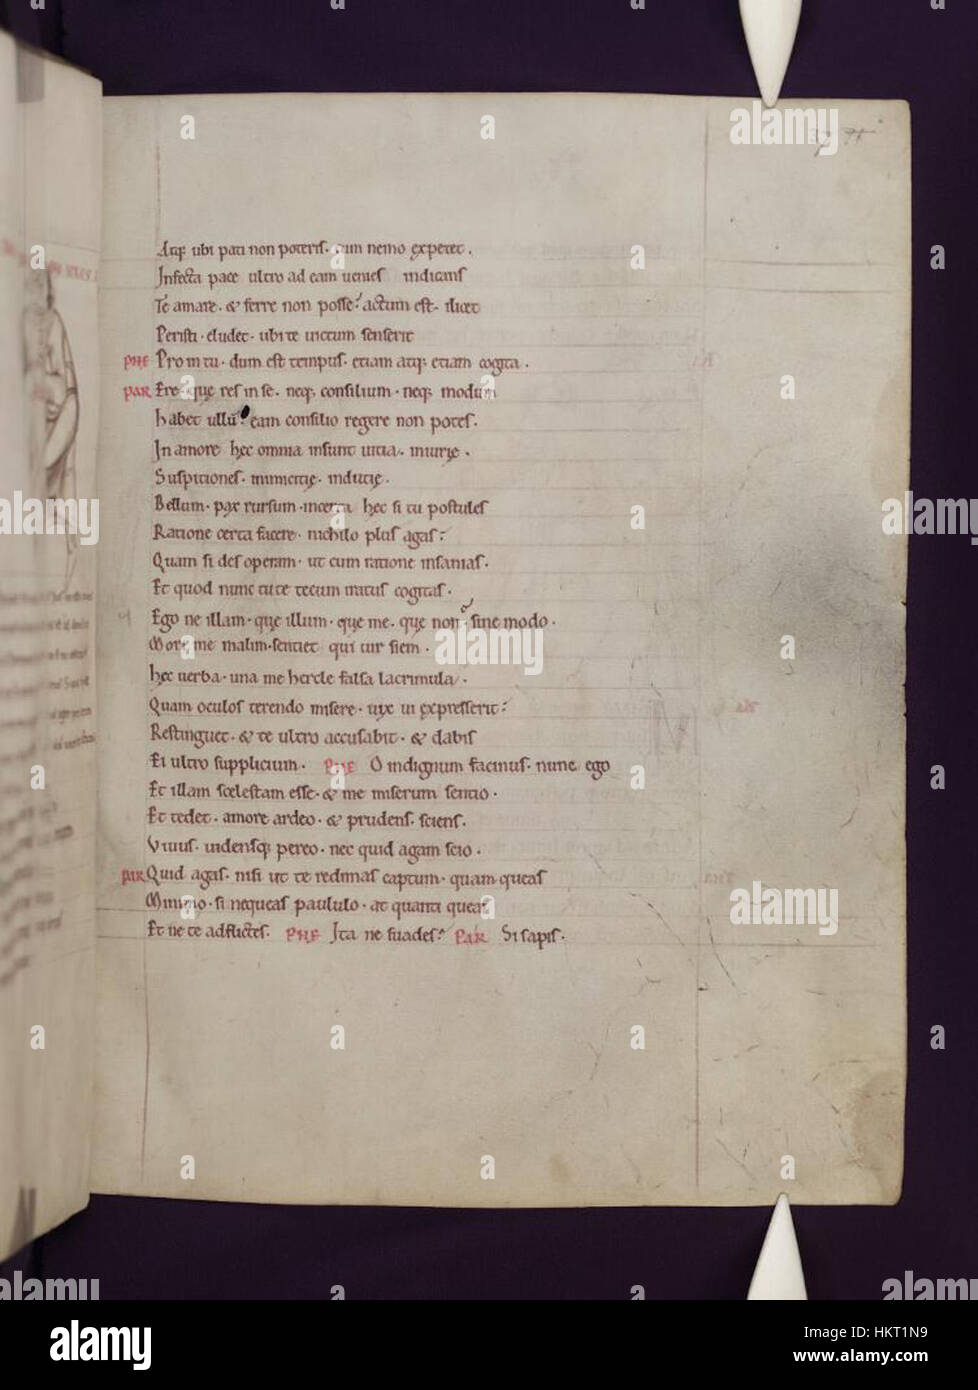 37
Atq; ubi pati non poteris. cum nemo expetet.
Infecta pace ultro ad eam venies indicans
Te amare. & ferre non posse. actum est. ilicet
Peristi. eludet. ubi te uictum senserit
PHE Proin tu. dum est tempus. etiam atq; etiam cogita.
PAR Ere. que res in se. neq; consilium. neq; modum
habet ullū. eam consilio regere non potes.
In amore hec omnia insunt uitia. iniurię.
Suspitiones. inimicitię. indutię.
Bellum. pax rursum. incerta hec si tu postules
Ratione certa facere. nichilo plus agas.
Quam si des operam. ut cum ratione insanias.
Et quod nunc tute tecum iratus cogitas.
Ego ne illam. que illum. que me. que non sine modo.
Mori me malim. sentiet qui uir siem.
hec uerba. una me hercle falsa lacrimula.
Quam oculos terendo misere. uix ui expresserit
Restinguet. & te ultro accusabit. & dabis
Ei ultro supplicium. PHE O indignum facinus. nunc ego
Et illam scelestam esse. & me miserum sentio.
Et tedet. amore ardeo. & prudens. sciens.
Viuus. uidensq; pereo. nec quid agam scio.
PAR Quid agas. nisi ut te redimas captum. quam queas
Minimo. si nequeas paululo. at quanti queas
Et ne te adflictes. PHE Ita ne suades. PAR Si sapis.
alamy
Image ID: HKT1N9
www.alamy.com